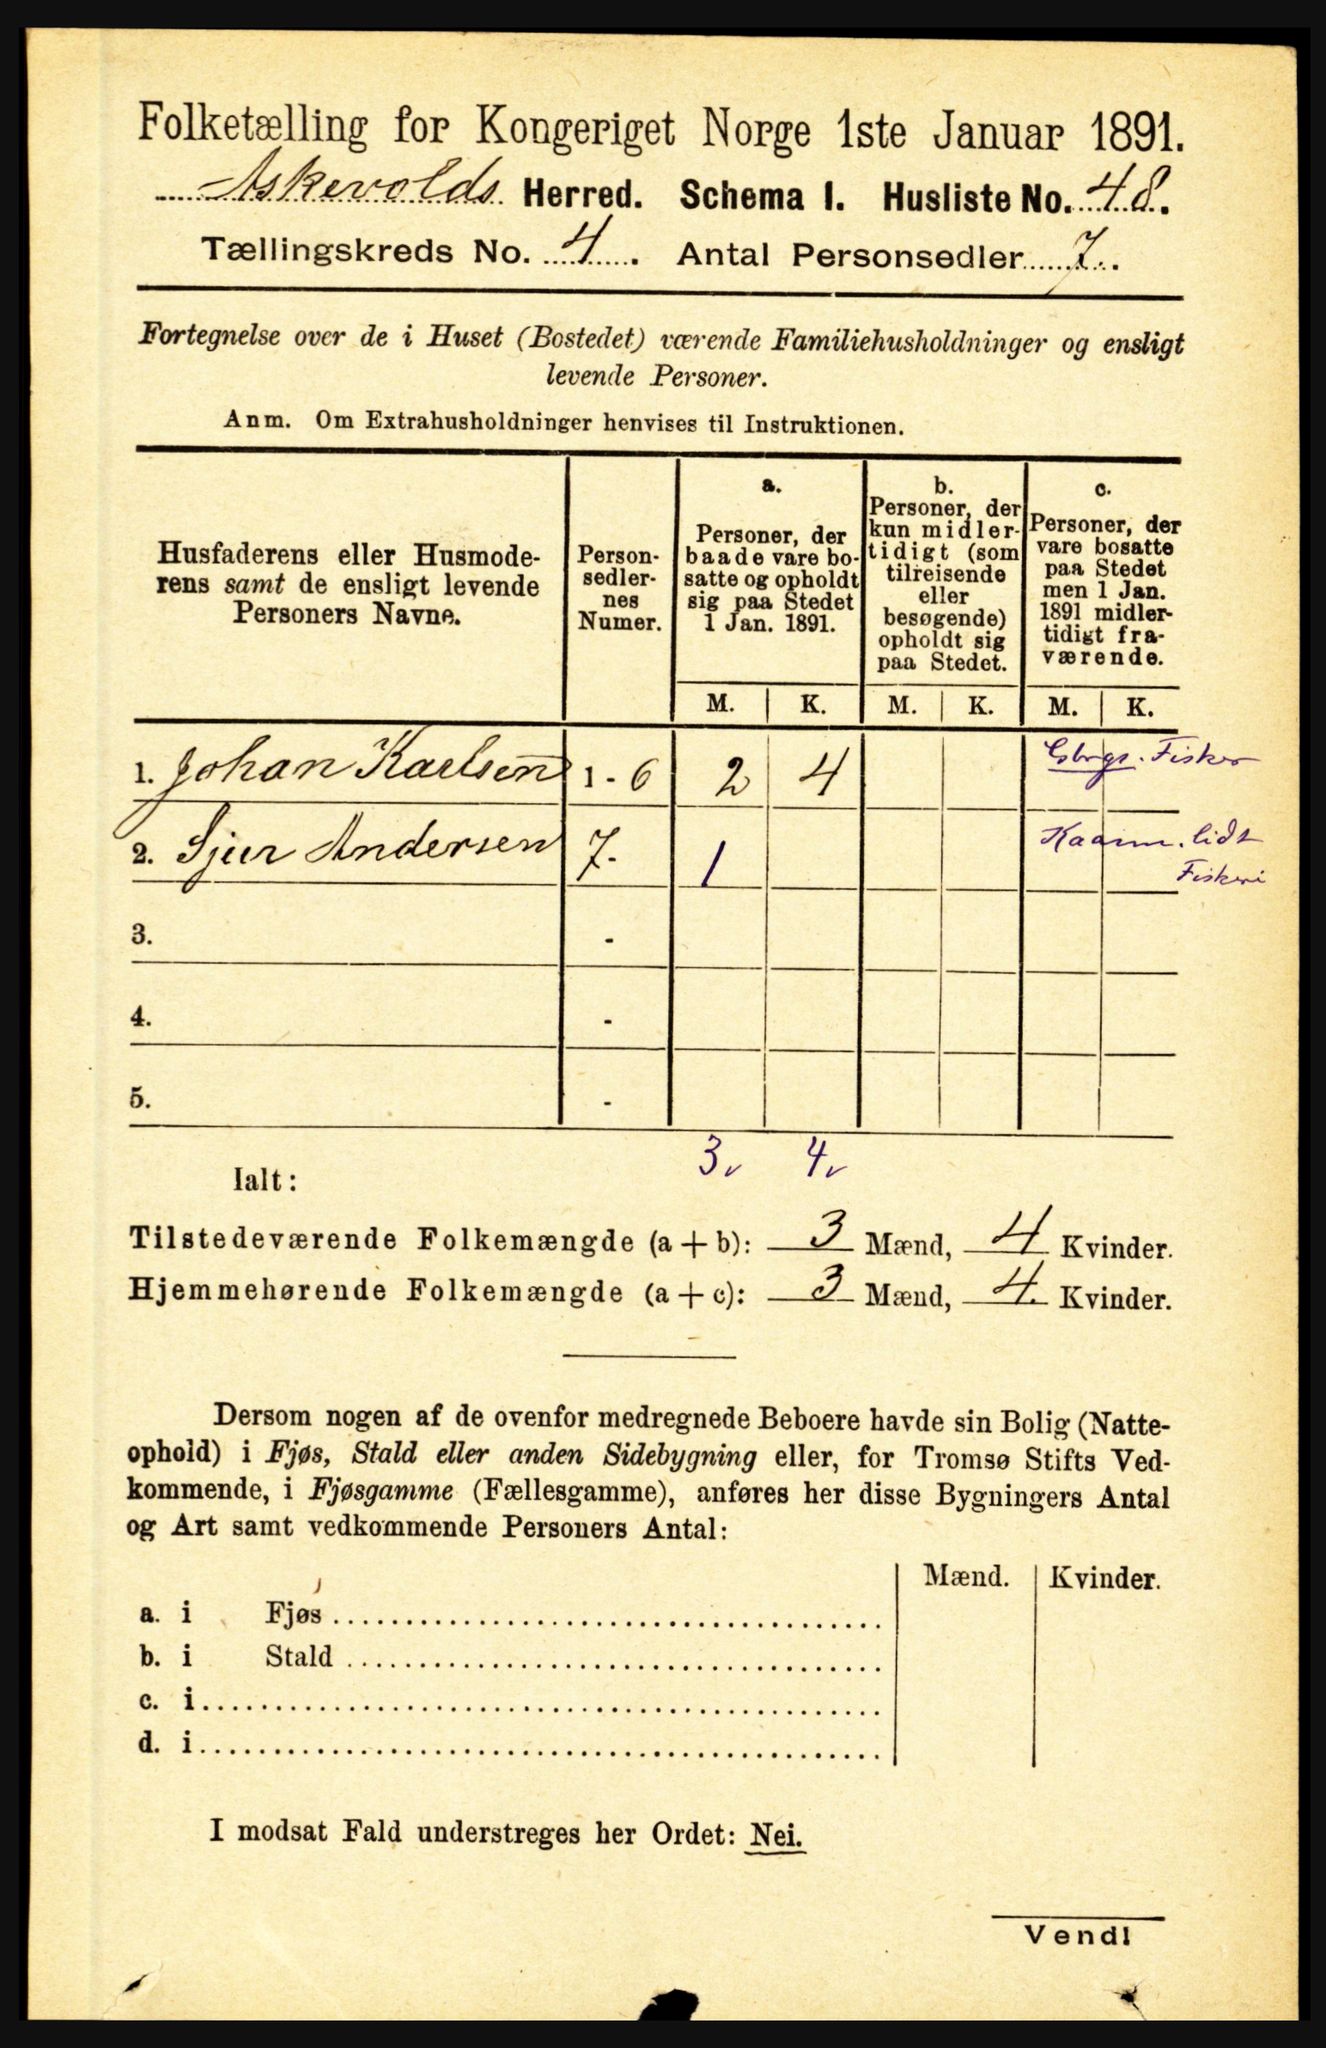 Folketælling for Kongeriget Norge 1ste Januar 1891.
Askevolds Herred. Schema I. Husliste No. 48.
Tællingskreds No. 4. Antal Personsedler 7.
Fortegnelse over de i Huset (Bostedet) værende Familiehusholdninger og ensligt
levende Personer.
Anm. Om Extrahusholdninger henvises til Instruktionen.
Husfaderens eller Husmode-
rens samt de ensligt levende
Personers Navne.
Person-
sedler-
nes
Numer.
a.
Personer, der
baade vare bo-
satte og opholdt
sig paa Stedet
1 Jan. 1891.
b.
Personer, der
kun midler-
tidigt (som
tilreisende
eller
besøgende)
opholdt sig
paa Stedet.
c.
Personer, der
vare bosatte
paa Stedet
men 1 Jan.
1891 midler-
tidigt fra-
værende.
M. K. M. K. M. K.
1. Johan Karlsen 1-6 2 4 Gbrgs. Fisker
2. Sjur Andersen 7- 1 Kaarm. lidt
Fiskeri
3. -
4. -
5. -
3 4
Ialt:
Tilstedeværende Folkemængde (a + b): 3 Mænd, 4 Kvinder.
Hjemmehørende Folkemængde (a + c): 3 Mænd, 4. Kvinder.
Dersom nogen af de ovenfor medregnede Beboere havde sin Bolig (Natte-
ophold) i Fjøs, Stald eller anden Sidebygning eller, for Tromsø Stifts Ved-
kommende, i Fjøsgamme (Fællesgamme), anføres her disse Bygningers Antal
og Art samt vedkommende Personers Antal:
Mænd. Kvinder.
a. i Fjøs
b. i Stald
c. i
d. i
I modsat Fald understreges her Ordet: Nei.
Vend!